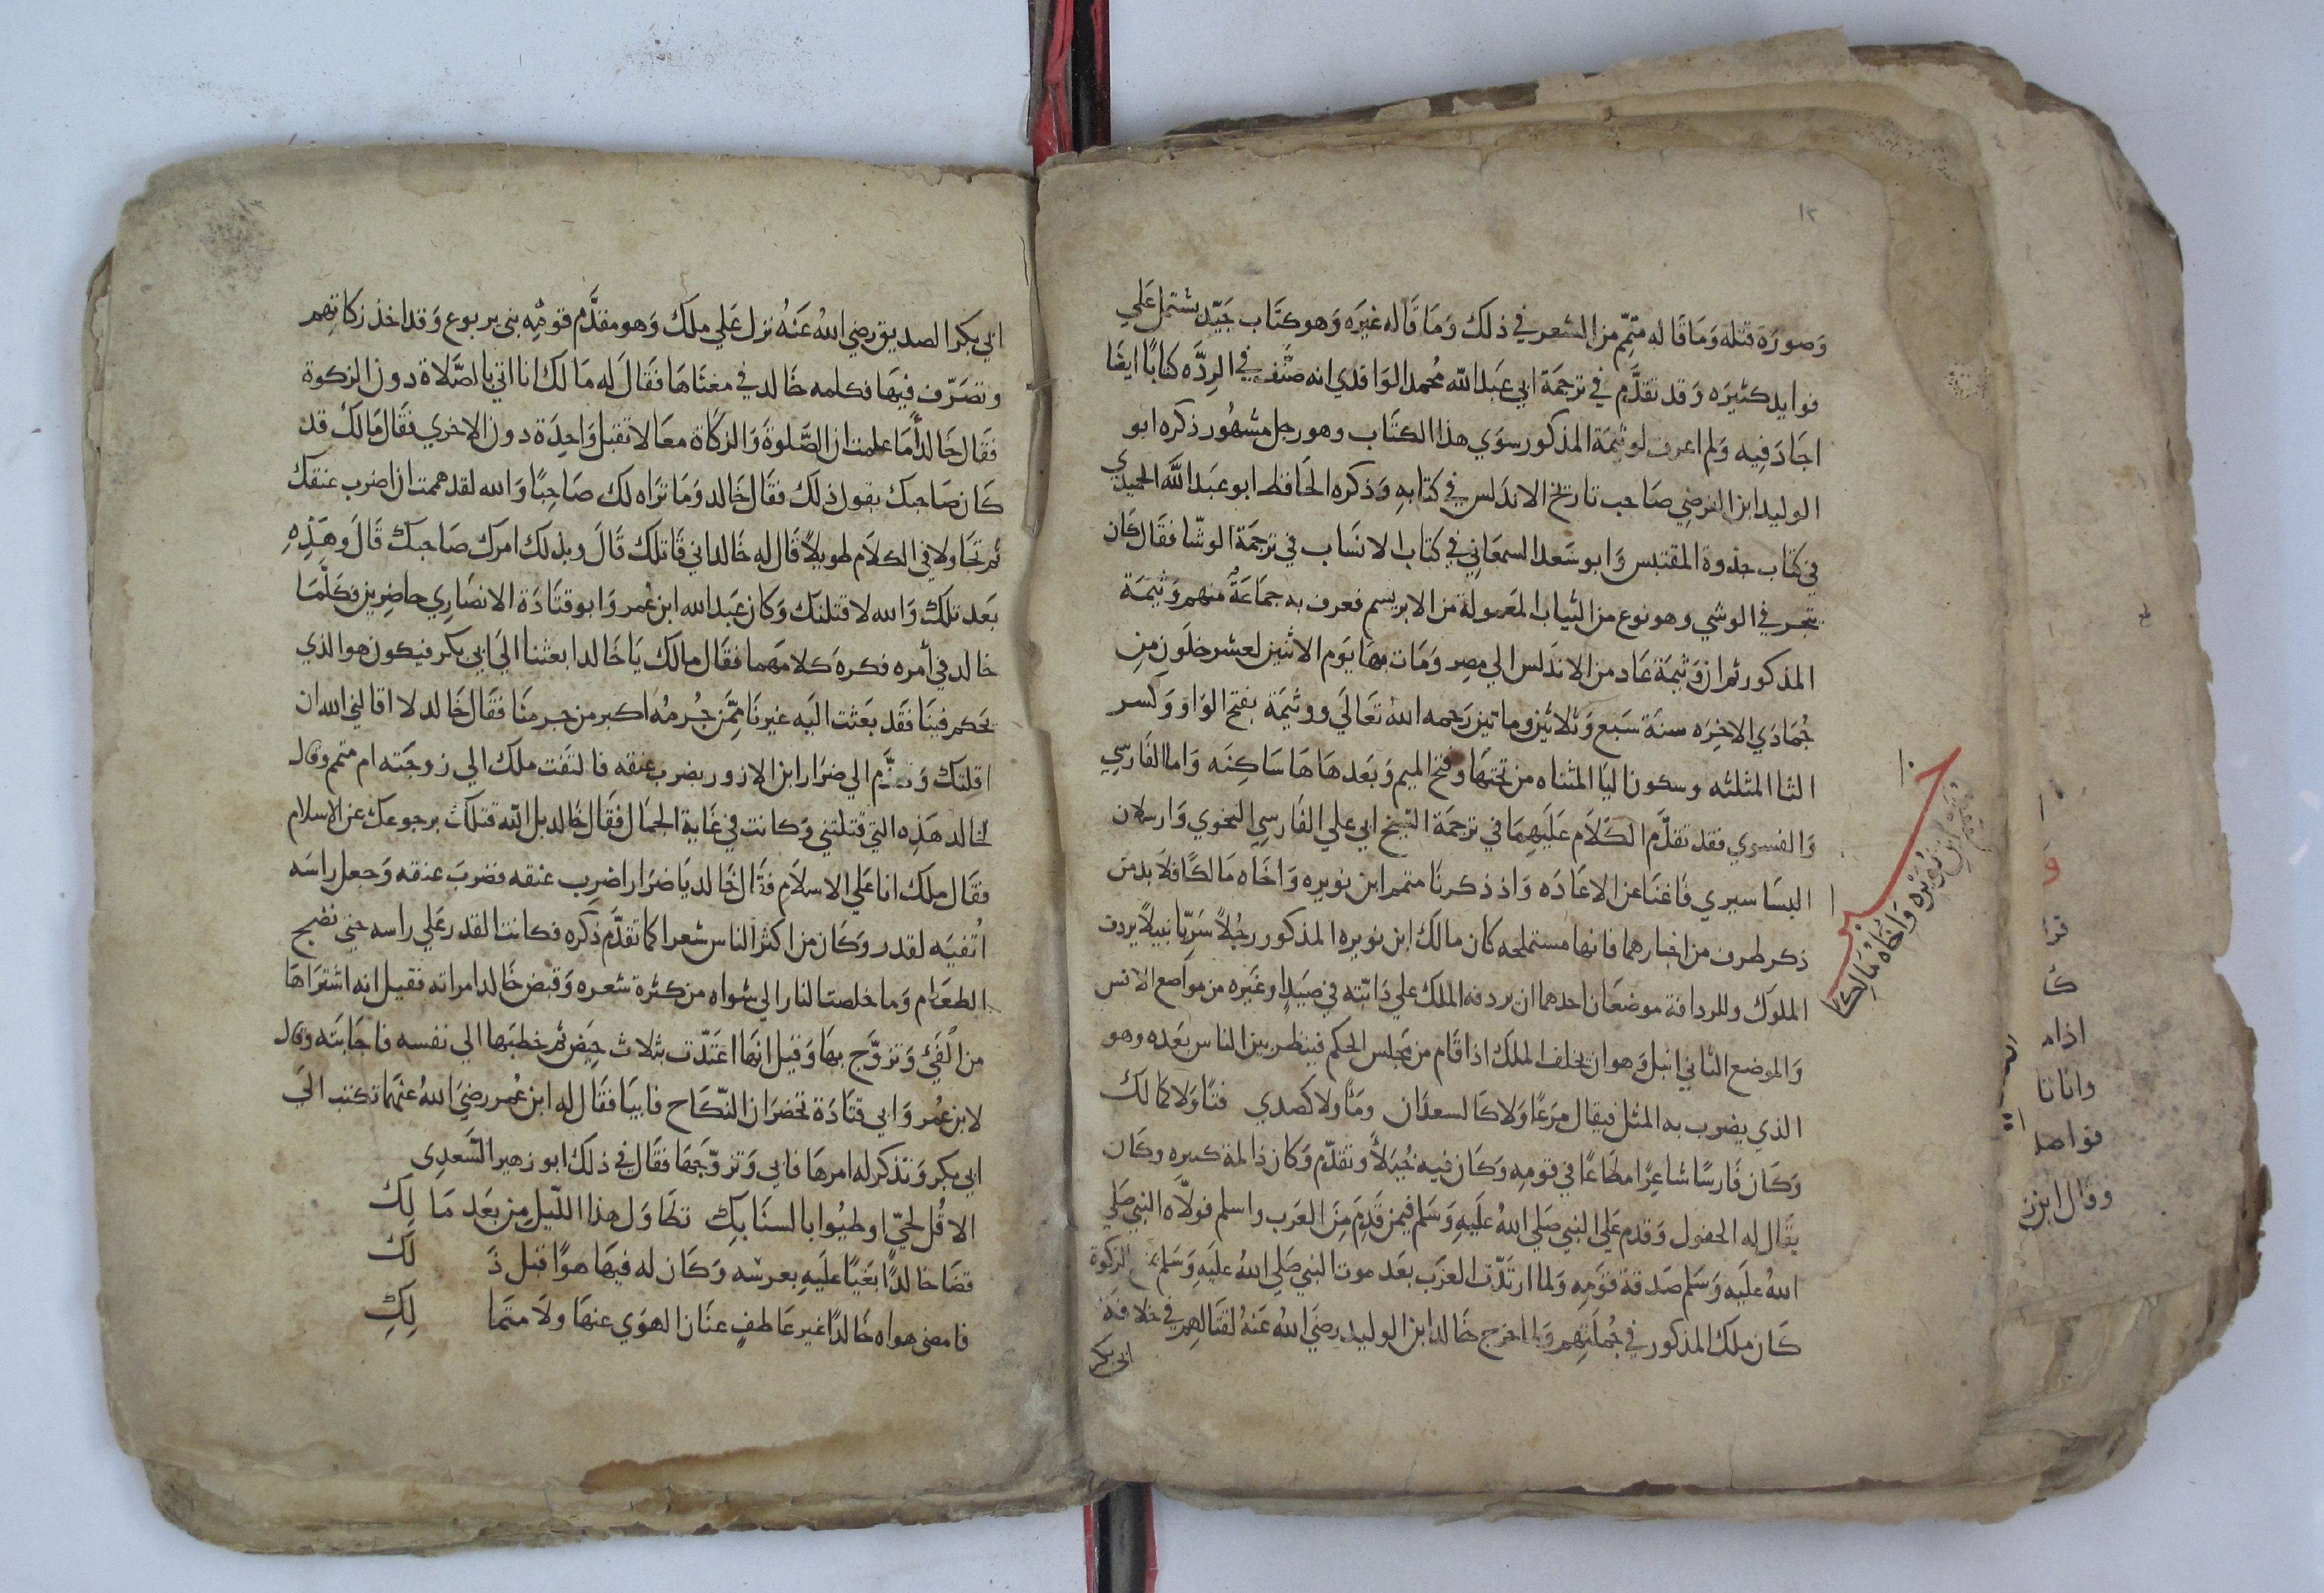 ١٢
وصورة قتله وما قاله متمّم من الشعر في ذلك وما قاله غيره وهو كتاب جيّد يشتمل علي
فوايد كثيره وقد تقدّم في ترجمة ابي عبد الله محمد الواقدي انه صنّف في الردّه كتابًا ايضًا
اجاد فيه ولم اعرف لوثيمة المذكور سوي هذا الكتاب وهو رجل مشهور ذكره ابو
الوليد ابن الفرضي صاحب تاريخ الاندلس في كتابه وذكره الحافظ ابو عبد الله الحميدي
في كتاب جذوة المقتبس وابو سعد السمعاني في كتاب الانساب في ترجمة الوشّا فقال كان
يتجر في الوشي وهو نوع من الثياب المعمولة من الابريسم فعرف به جماعة منهم وثيمة
المذكور ثم ان وثيمة عاد من الاندلس الي مصر ومات بها يوم الاثنين لعشر خلون من
جمادي الاخره سنة سبع وثلاثين وماتين رحمه الله تعالي ووثيمة بفتح الواو وكسر
الثا المثلثه وسكون اليا المثناه من تحتها وفتح الميم وبعدها ها ساكنه واما الفارسي
والفسوي فقد تقدّم الكلام عليهما في ترجمة الشيخ ابي علي الفارسي النحوي وارسلان
البساسيري فاغنا عن الاعاده واذ ذكرنا متمم ابن نويره واخاه مالكًا فلا بد من
ذكر طرف من اخبارهما فانها مستملحه كان مالك ابن نويره المذكور رجلًا سريّا نبيلًا يردف
الملوك وللردافة موضعان احدهما ان يردفه الملك علي دابّته في صيد او غيره من مواضع الانس
والموضع الثاني انبل وهو ان يخلف الملك اذا قام من مجلس الحكم فينظر بين الناس بعده وهو
الذي يضرب به المثل فيقال مرعًا ولا كالسعدان ومًا ولا كصدي فتًا ولا كمالك
وكان فارسًا شاعرًا مطاعًا في قومه وكان فيه خيلا وتقدّم وكان ذا لمة كبيره وكان
يقال له الجفول وقدم علي النبي صلي الله عليه وسلم فيمن قدم من العرب واسلم فولّاه النبي صلي
الله عليه وسلم صدقة قومه ولما ارتدّت العرب بعد موت النبي صلي الله عليه وسلم بمنع الزكوة
كان ملك المذكور في جملتهم ولما خرج خالد ابن الوليد رضي الله عنه لقتالهم في خلافة
ابي بكر
نويره واخاه مالكا
ابي بكر الصديق رضي الله عنه نزل علي ملك وهو مقدّم قومه بني يربوع وقد اخذ زكاتهم
وتصرّف فيها فكلمه خالد في معناها فقال له مالك انا اتي بالصلاة دون الزكوة
فقال خالد أما علمت ان الصلوة والزكاة معا لا تقبل واحدة دون الاخري فقال مالك قد
كان صاحبك يقول ذلك فقال خالد وما تراه لك صاحبًا والله لقد هممت ان اضرب عنقك
ثم تجاولا في الكلام طويلًا قال له خالد اني قاتلك قال وبذلك امرك صاحبك قال وهذه
بعد تلك والله لاقتلنك وكان عبد الله ابن عمر وابو قتادة الانصاري حاضرين فكلّما
خالد في أمره فكره كلامهما فقال مالك يا خالد ابعثنا الي ابي بكر فيكون هو الذي
يحكم فينا فقد بعثت اليه غيرنا ممّن جرمه اكبر من جرمنا فقال خالد لا اقالني الله ان
اقلتك وتقدّم الي ضرار ابن الازور بضرب عنقه فالتفت ملك الي زوجته ام متمم وقال
لخالد هذه التي قتلتني وكانت في غاية الجمال فقال خالد بل الله قتلك برجوعك عن الاسلام
فقال ملك انا علي الاسلام فقال خالد يا ضرار اضرب عنقه فضرب عنقه وجعل راسه
اثفيه لقدر وكان من اكثر الناس شعرا كما تقدّم ذكره فكانت القدر علي راسه حتي نضج
الطعام وما خلصت النار الي شواه من كثرة شعره وقبض خالد امراته فقيل انه اشتراها
من الفيء وتزوّج بها وقيل انها اعتدّت بثلاث حيض ثم خطبها الي نفسه فاجابته وقال
لابن عمر وابي قتادة تحضران النكاح فابيا فقال له ابن عمر رضي الله عنهما تكتب الي
ابي بكر وتذكر له امرها فابي وتزوّجها فقال في ذلك ابو زهير السّعدي
الا قل لحيّ اوطيوا بالسنابك تطاول هذا الليل من بعد مالك
قضا خالدًا بغيًا عليه بعرسه وكان له فيها هوًا قبل ذلك
فامضي هواه خالدًا غير عاطف عنان الهوي عنها ولا متمالك